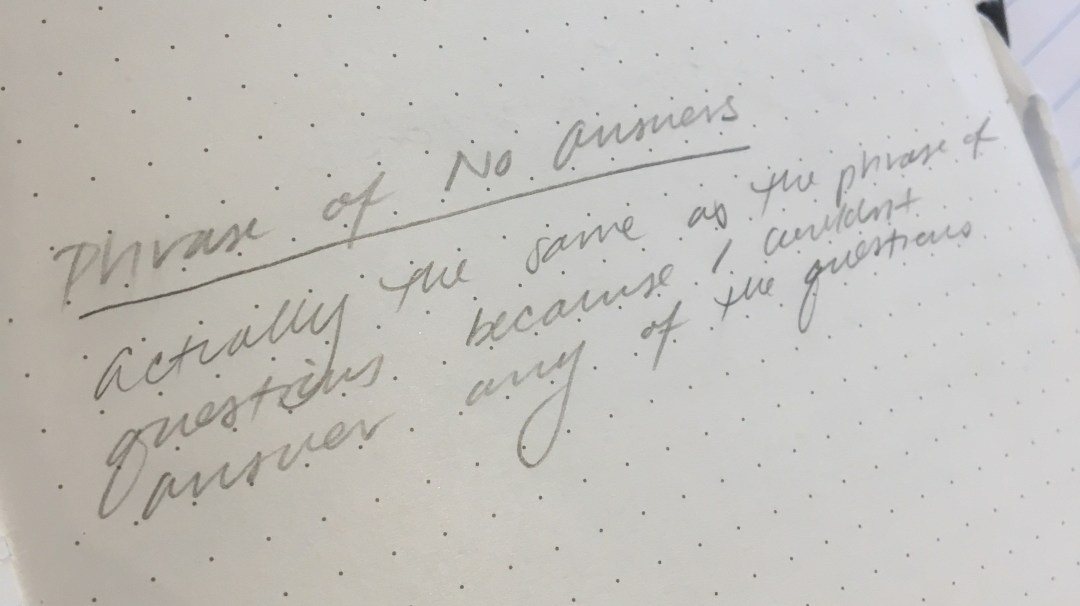 Phrase of No Answers
Actually the same as the phrase of
questions because I couldn't
answer any of the questions